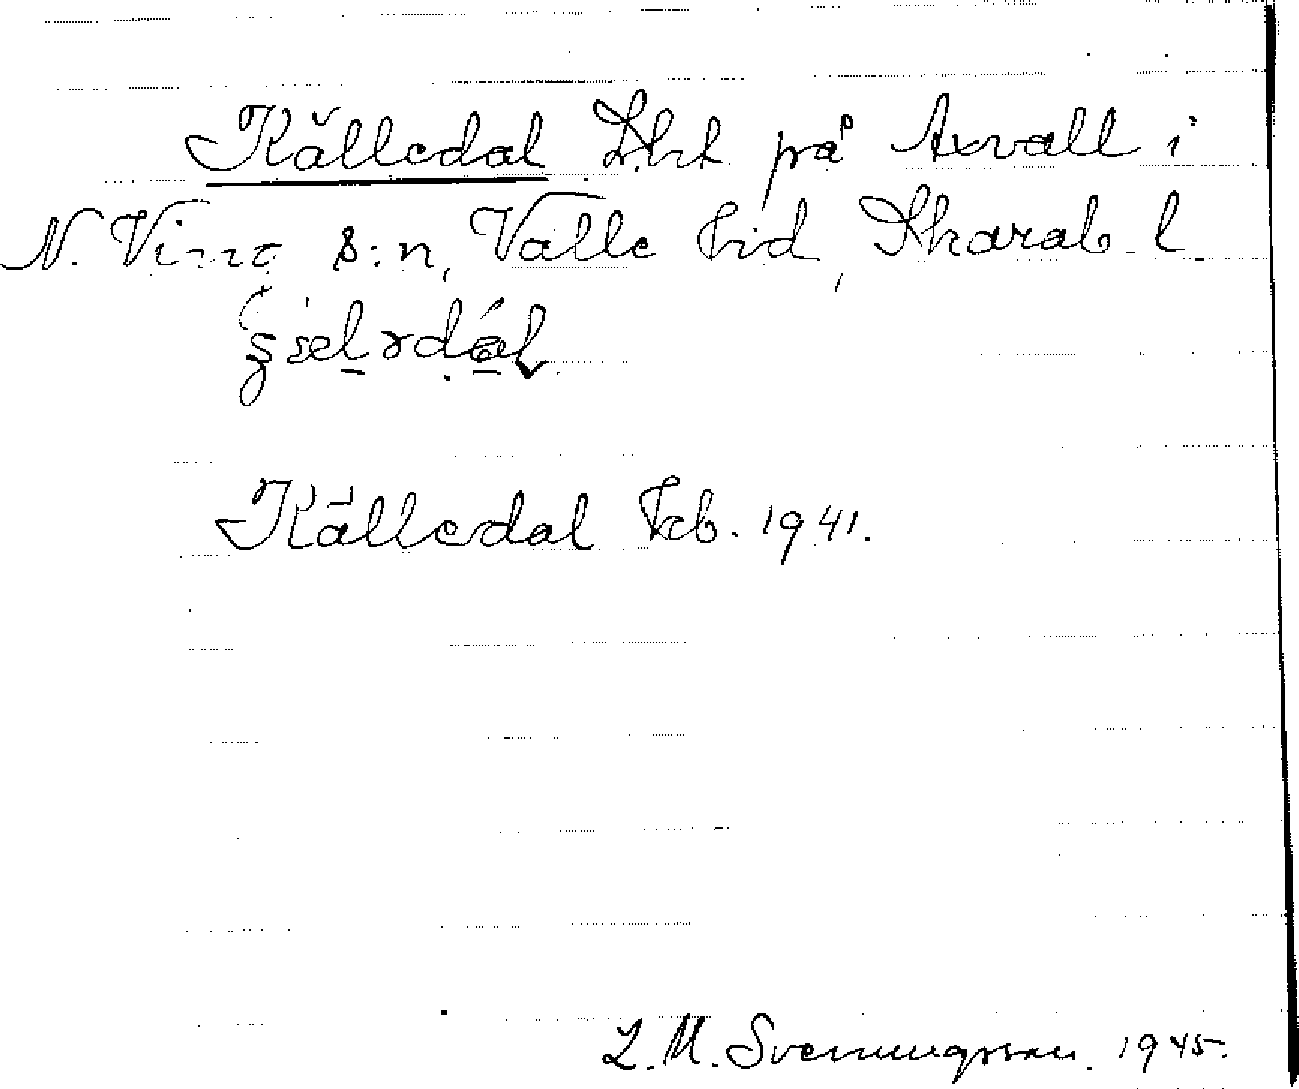 Källedal Lht på Axvall i
N. Ving s:n, Valle hd, Skarab. l.
Källedal Jeb. 1941.
L. M. Svenungsson. 1945.